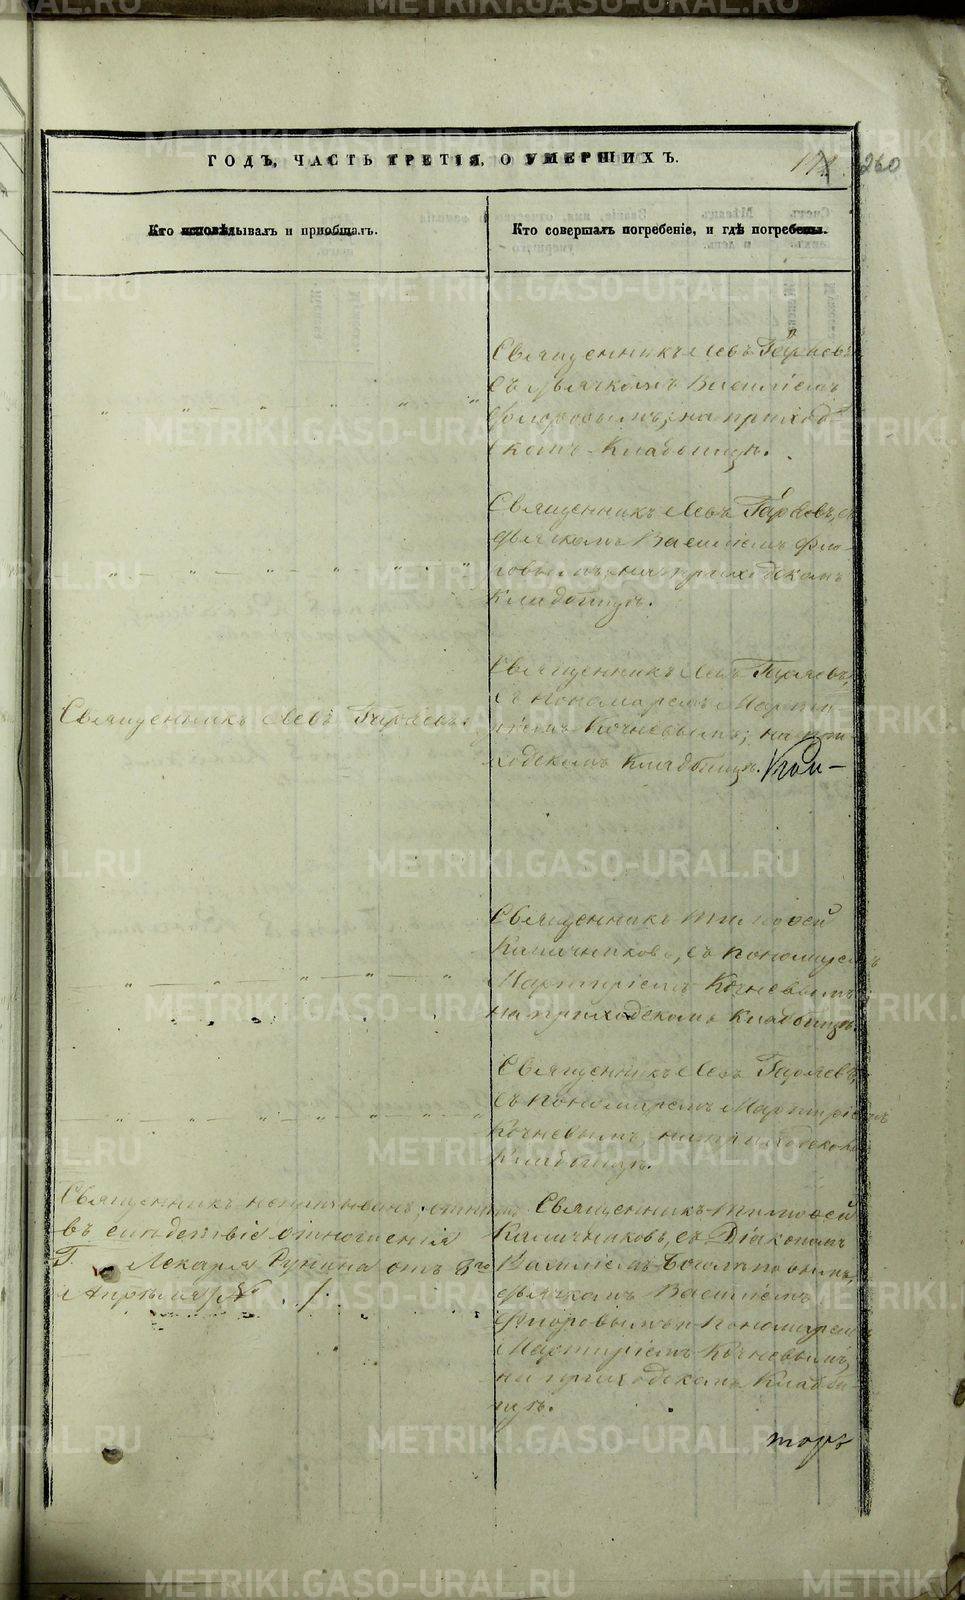 ГОДЪ, ЧАСТЬ ТРЕТІЯ, О УМЕРШИХЪ.
260
Кто исповѣдывалъ и пріобщалъ.
Кто совершалъ погребеніе, и гдѣ погребены.
Священникъ Левъ
съ дьячкомъ Василіемъ
Флоровымъ; на приход-
скомъ Кладбищѣ.
Священникъ Левъ
дьячкомъ Василіемъ Фло-
ровымъ, на приходскомъ
Кладбищѣ.
Священникъ Левъ
Священникъ Левъ
съ пономаремъ Марти-
ріемъ Кочневымъ; на при-
ходскомъ Кладбищѣ.
Священникъ Тимофей
Калачниковъ, съ пономаремъ
Мартиріемъ Кочневымъ
на приходскомъ Кладбищѣ.
Священникъ Левъ
съ пономаремъ Мартиріемъ
Кочневымъ, на приходскомъ
Кладбищѣ.
Священникъ
въ слѣдствіе отношенія
Г. Лекаря Рунина отъ 8го
Апрѣля №
Священникъ Тимофей
Калачниковъ, съ Діакономъ
Василіемъ
дьячкомъ Василіемъ
Флоровымъ и пономаремъ
Мартиріемъ Кочневымъ,
на приходскомъ Кладби-
щѣ.
METRIKI.GASO-URAL.RU